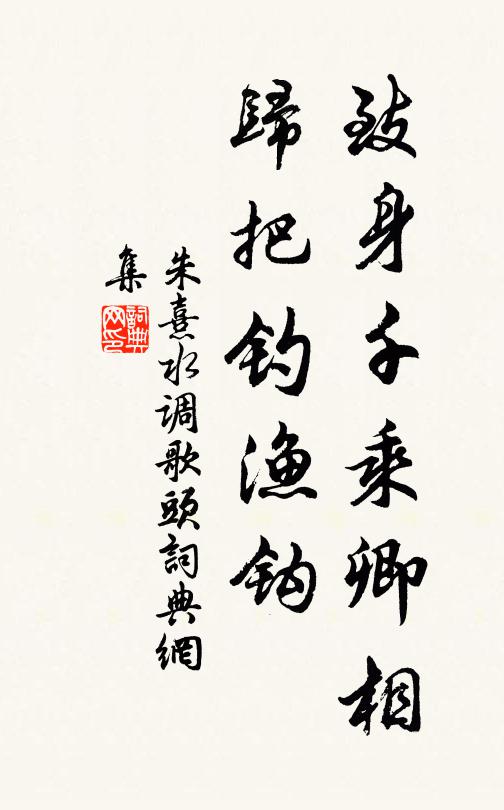 致身千乘卿相
歸把釣漁鈎
朱熹水调歌頭詞典網
集
詞典
网印